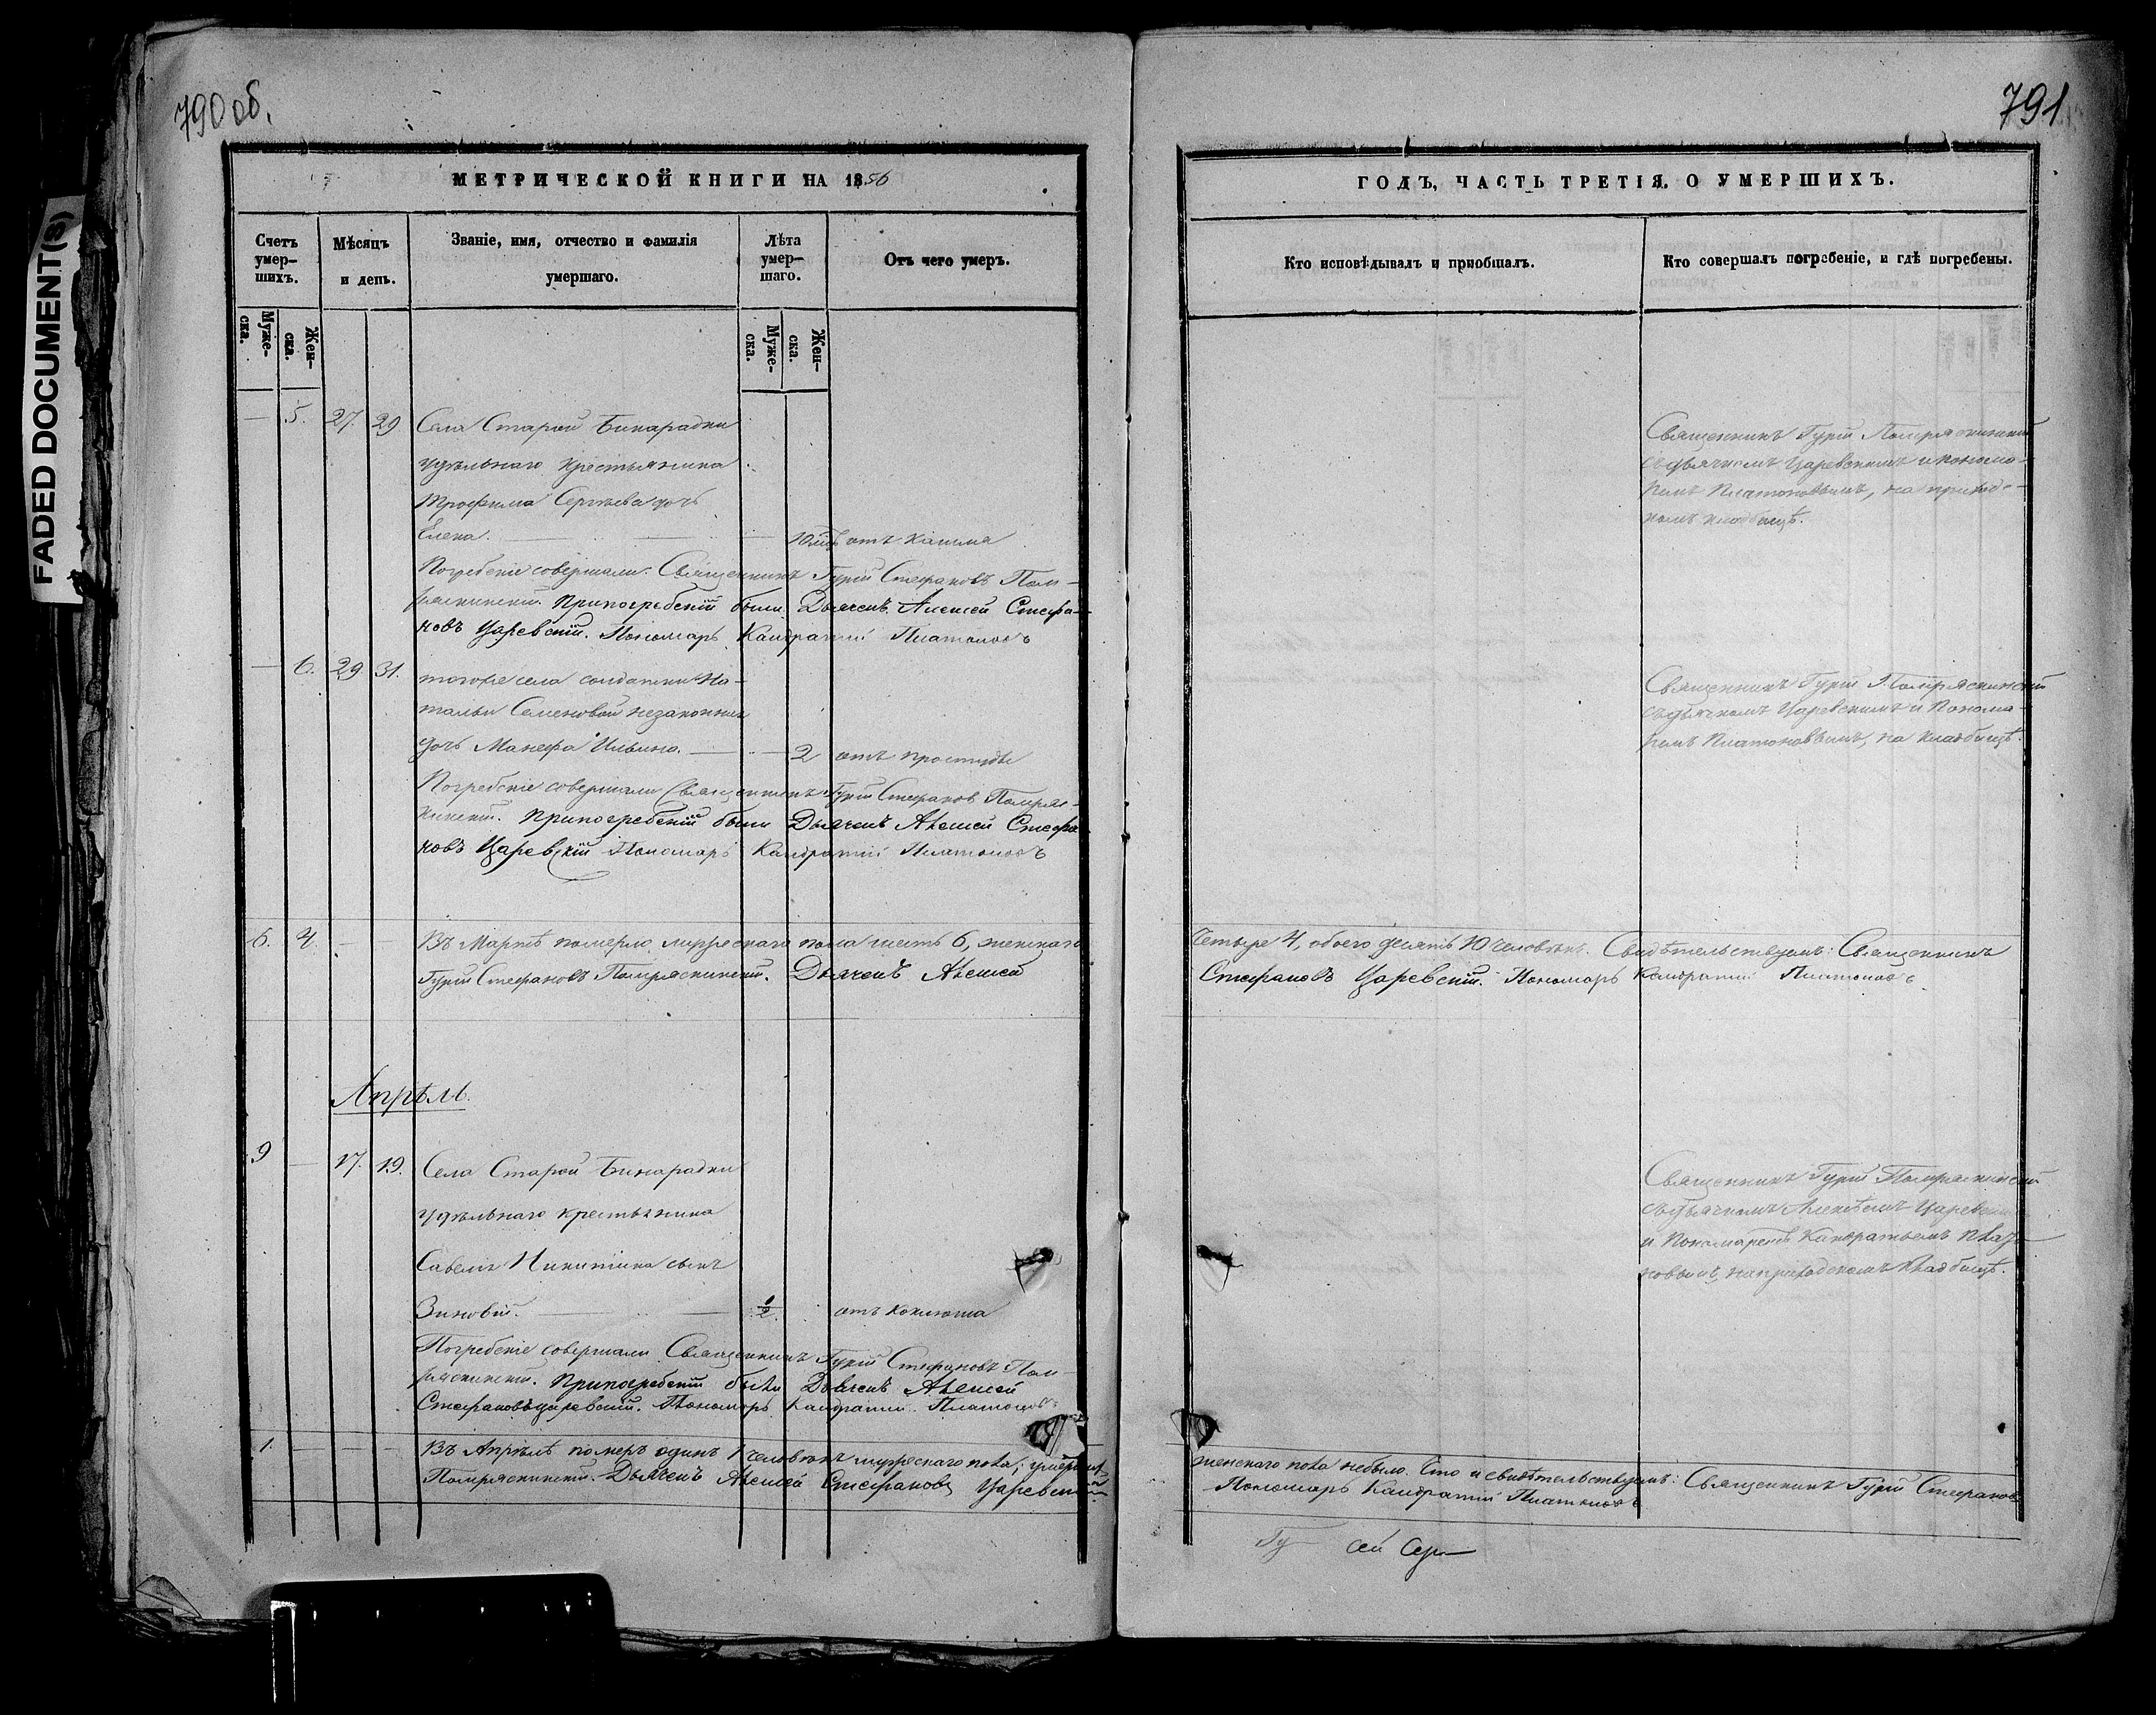 790 об.
МЕТРИЧЕСКОЙ КНИГИ НА 1856
Счетъ умер-
шихъ.
Мѣсяцъ
и день.
Званіе, имя, отчество и фамилія
умершаго.
Лѣта
умер-
шаго.
Отъ чего умеръ.
Муже-
ска.
Жен-
ска.
Муже-
ска.
Жен-
ска.
— 5. 27. 29 Села Старой Бинарадки
удѣльнаго крестьянина
Трофима Сергѣева дочь
Елена. 10 отъ кашля
Погребеніе совершали: Священникъ Гурій Стефановъ Пом-
ряскинскій. Припогребеніи были Дьячекъ Алексей Стефа-
новъ Царевскій. Пономарь Кандратій Платоновъ
— 6. 29. 31. тогоже села солдатки На-
тальи Семеновой незаконная
дочь Манефа Ильина. — 2 отъ простуды
Погребеніе совершали Священникъ Гурій Стефановъ Помряс-
кинскій. Припогребеніи были Дьячекъ Алексей Стефа-
новъ Царевскій Пономарь Кандратій Платоновъ
6. 4. — — Въ Мартѣ померло мужескаго пола шесть 6, женскаго
Гурій Стефановъ Помряскинскій. Дьячекъ Алексей
Апрѣль.
9 — 17. 19. Села Старой Бинарадки
удѣльнаго крестьянина
Савелія Никитина сынъ
Зиновій. — 1/2. отъ коклюша
Погребеніе совершали Священникъ Гурій Стефановъ Пом-
ряскинскій. Припогребеніи были Дьячекъ Алексей
Стефановъ Царевскій. Пономарь Кандратій Платоновъ
1. — — — Въ Апрѣлѣ померъ одинъ 1 человѣкъ мужескаго пола; умершихъ
Помряскинскій. Дьячекъ Алексей Стефановъ Царевскій
791
ГОДЪ, ЧАСТЬ ТРЕТІЯ, О УМЕРШИХЪ.
Кто исповѣдывалъ и пріобщалъ.
Кто совершалъ погребеніе, и гдѣ погребены.
Священникъ Гурій Помряскинскій
съ дьячкомъ Царевскимъ и понома-
ремъ Платоновымъ, на приходс-
комъ кладбищѣ.
Священникъ Гурій Помряскинскій
съ дьячкомъ Царевскимъ и Понома-
ремъ Платоновымъ, на кладбищѣ.
четыре 4, обоего десять 10 человѣкъ. Свидѣтельствуемъ: Священникъ
Стефановъ Царевскій. Пономарь Кандратій Платоновъ
Священникъ Гурій Помряскинскій
съ дьячкомъ Алексѣемъ Царевскимъ
и Пономаремъ Кандратьемъ Плато-
новымъ, на приходскомъ кладбищѣ.
женскаго пола небыло. Сто и свидѣтельствуемъ: Священникъ Гурій Стефановъ
Пономарь Кандратій Платоновъ
Гу— сей Сер—
FADED DOCUMENT(S)